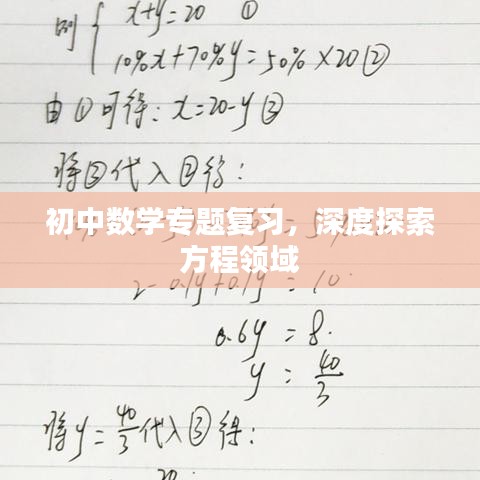 则 { x+y=20 ①
10%x+70%y=50%×20 ②
由①可得：x=20-y ③
将③代入②得：
初中数学专题复习，深度探索
方程领域
2-0.1y+0.7y=10
0.6y=8.
y=40/3
将y=40/3代入③得：